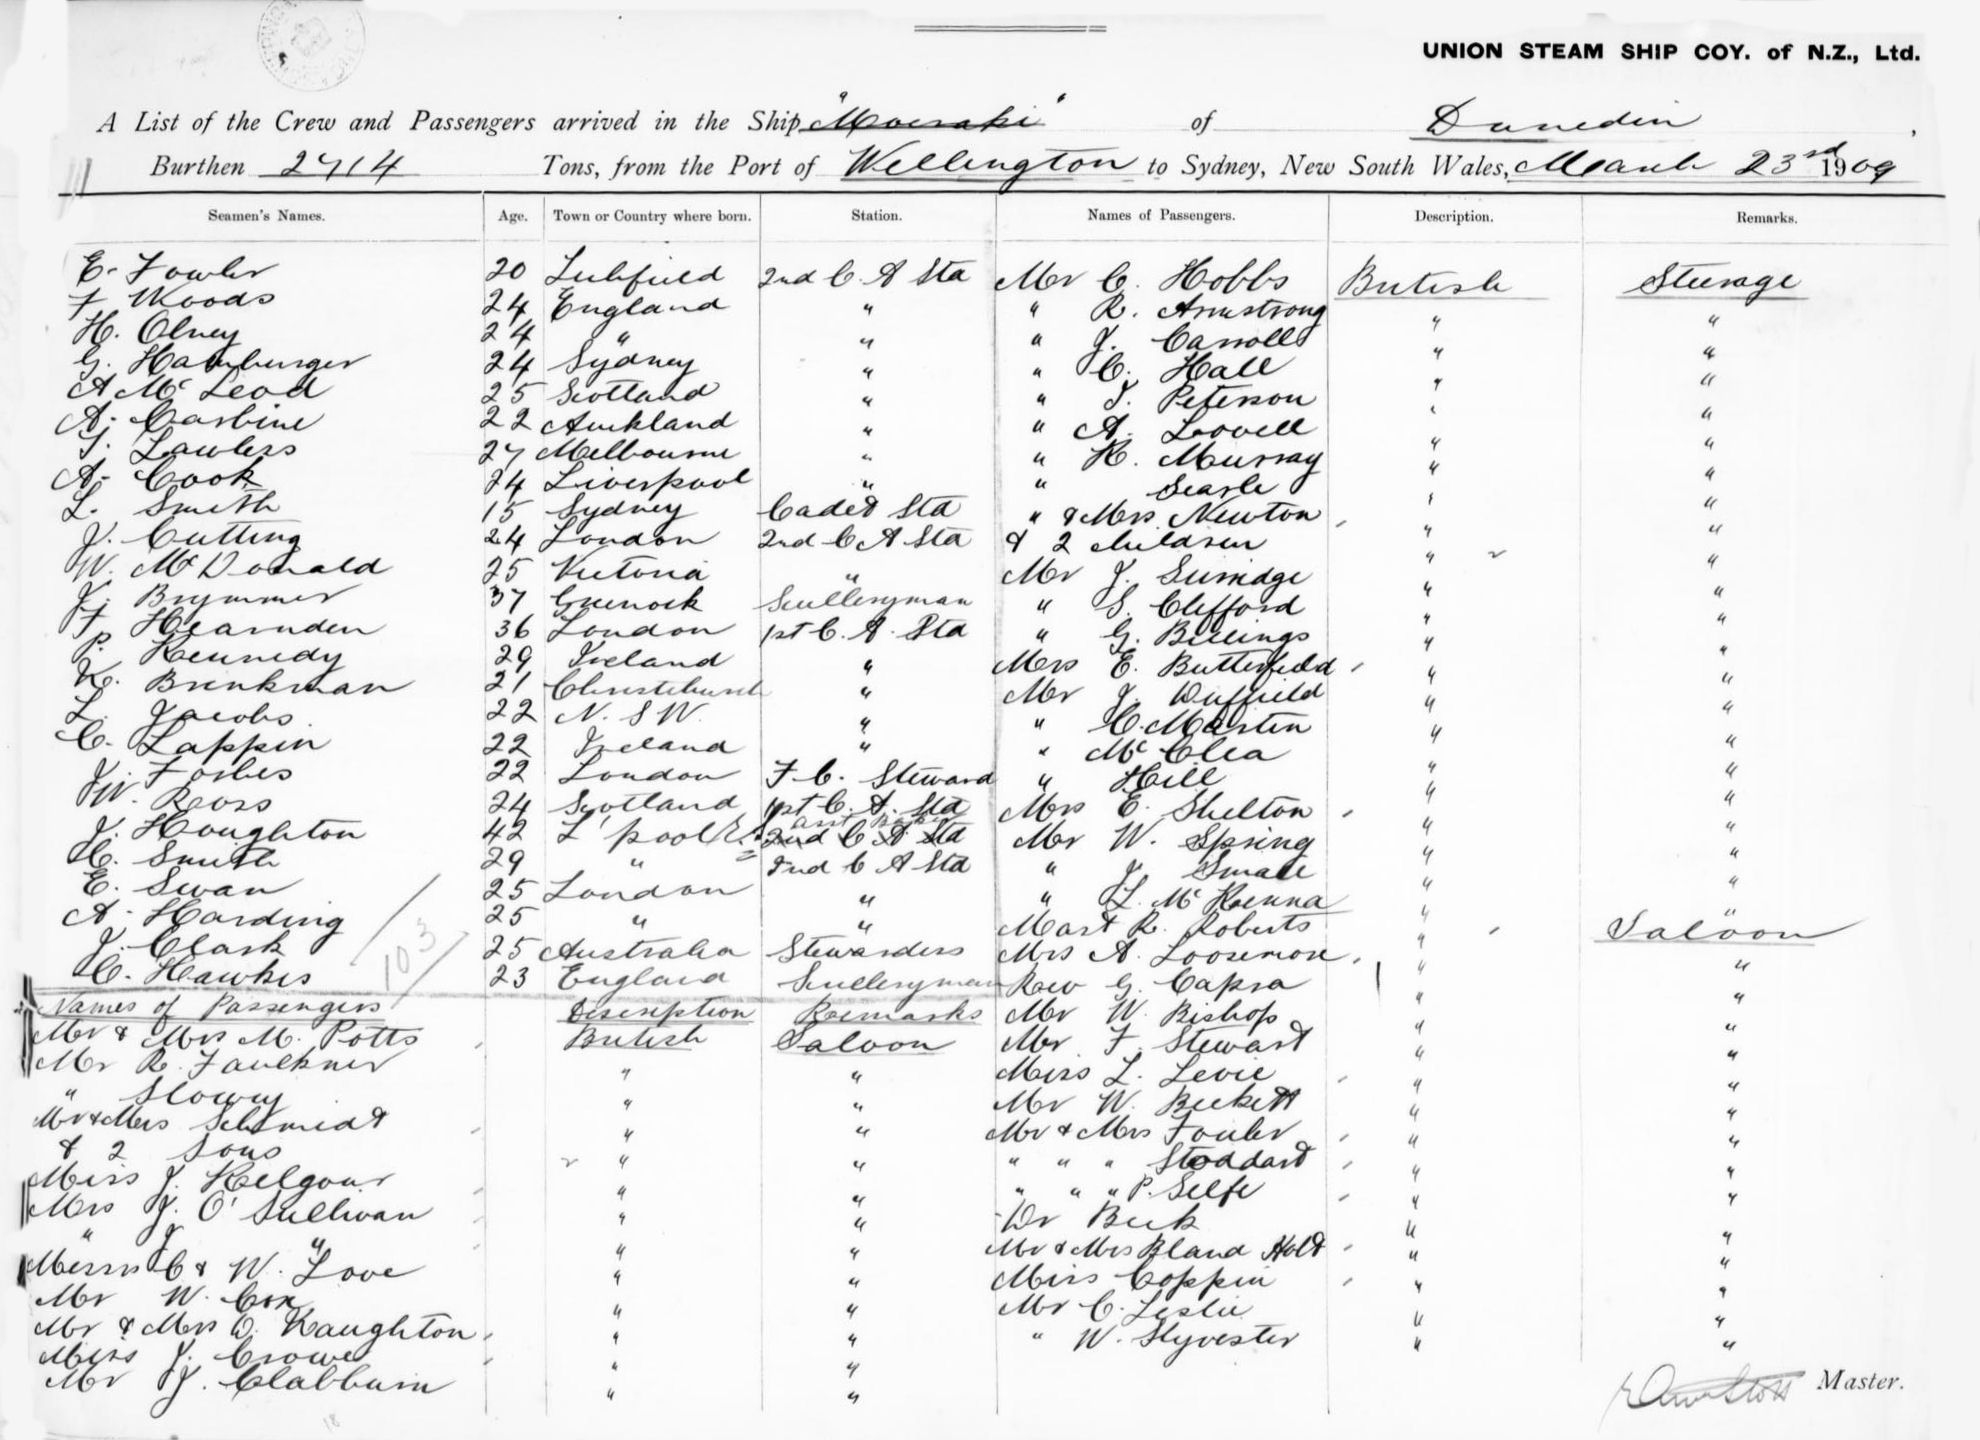 UNION STEAM SHIP COY. of N.Z., Ltd.
A List of the Crew and Passengers arrived in the Ship "Moeraki" of Dunedin,
Burthen 2714 Tons, from the Port of Wellington to Sydney, New South Wales, March 23rd 1909
Seamen's Names. Age. Town or Country where born. Station. Names of Passengers. Description. Remarks.
E. Fowler 20 Lichfield 2nd C. A Std Mr C. Hobbs British Steerage
F Woods 24 England " " R. Armstrong " "
H. Olney 24 " " " J. Carroll " "
G. Hamburger 24 Sydney " " C. Hall " "
A McLeod 25 Scotland " " T. Peterson " "
A. Carbine 22 Auckland " " A. Lovell " "
T. Lawless 27 Melbourne " " K. Murray " "
A. Cook 24 Liverpool " " Searle " "
L. Smith 15 Sydney Cadet Std " & Mrs Newton " "
J. Cutting 24 London 2nd C A Std & 2 children " "
W. McDonald 25 Victoria " Mr J. Surridge " "
J. Brymmer 37 Greenock Sculleryman " S. Clifford " "
F Hearnden 36 London 1st C. A. Std " G. Billings " "
P. Kennedy 29 Ireland " Mrs E. Butterfield " "
K. Brinkman 21 Christchurch " Mr J. Duffield " "
L. Jacobs 22 N. S W. " " C. Martin " "
C. Lappin 22 Ireland " " McClea " "
J. Forbes 22 London F. C. Steward " Hill " "
W. Ross 24 Scotland 1st C. A. Std Mrs E. Shelton " "
J. Houghton 42 L'pool asst Baker 2nd C A Std Mr W. Spring " "
H. Smith 29 " 2nd C A Std " J. Smale " "
E. Swan 25 London " " L. McKenna " "
A. Harding 25 " " Mast R. Roberts " "
J. Clark 25 Australia Stewardess Mrs A. Loosemore " Saloon
C. Hawkes 23 England Sculleryman Rev G. Capra " "
103
Names of Passengers Description Remarks Mr W. Bishop " "
Mr & Mrs M. Potts British Saloon Mr F. Stewart " "
Mr R. Faulkner " " Miss L. Levie " "
" Slowey " " Mr W. Beckett " "
Mr & Mrs Schmidt " " Mr & Mrs Fowler " "
& 2 Sons " " " " " Stoddard " "
Miss J. Kilgour " " " " " P. Selfe " "
Mrs J. O'Sullivan " " Dr Beck " "
" J " " " Mr & Mrs Bland Holt " "
Messrs C & W. Love " " Miss Coppin " "
Mr W. Cox " " Mr C. Leslie " "
Mr & Mrs D. Naughton " " " W. Slyvester " "
Miss J. Crowe " "
Mr J. Clabburn " "
Master.